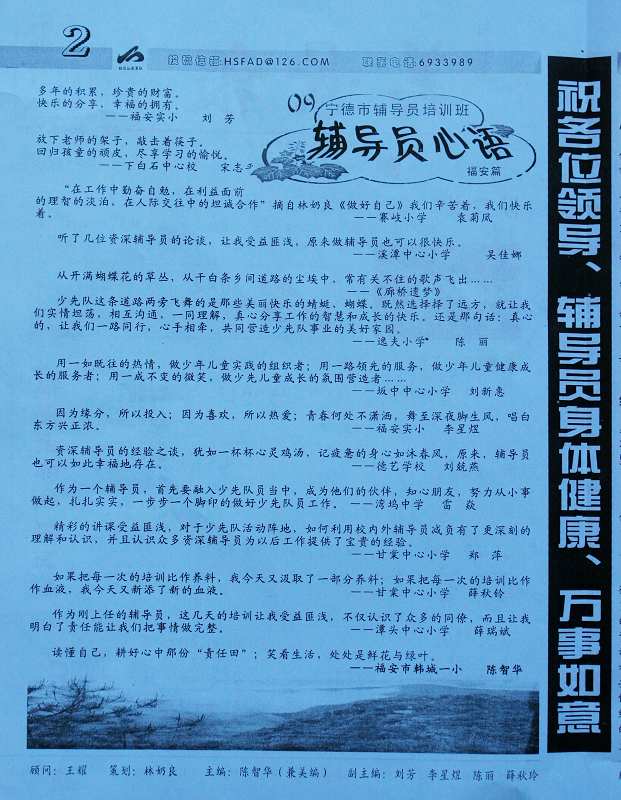 2
投稿信箱:HSFAD@126.COM 联系电话:6933989
多年的积累，珍贵的财富。
快乐的分享，幸福的拥有。
——福安实小 刘芳
放下老师的架子，敲击着筷子。
回归孩童的顽皮，尽享学习的愉悦。
——下白石中心校 宋志
09宁德市辅导员培训班
辅导员心语
福安篇
“在工作中勤奋自勉，在利益面前
的理智的淡泊，在人际交往中的坦诚合作”摘自林奶良《做好自己》我们辛苦着，我们快乐
着。 ——赛岐小学 袁菊凤
听了几位资深辅导员的论谈，让我受益匪浅，原来做辅导员也可以很快乐。
——溪潭中心小学 吴佳娜
从开满蝴蝶花的草丛，从干白条乡间道路的尘埃中，常有关不住的歌声飞出……
——《廊桥遗梦》
少先队这条道路两旁飞舞的是那些美丽快乐的蜻蜓、蝴蝶。既然选择择了远方，就让我
们实情坦荡，相互沟通，一同理解，真心分享工作的智慧和成长的快乐。还是那句话：真心
的，让我们一路同行，心手相牵，共同营造少先队事业的美好家园。
——逸夫小学 陈丽
用一如既往的热情，做少年儿童实践的组织者；用一路领先的服务，做少年儿童健康成
长的服务者；用一成不变的微笑，做少先儿童成长的氛围营造者……
——坂中中心小学 刘新惠
因为缘分，所以投入；因为喜欢，所以热爱；青春何处不潇洒，舞至深夜脚生风，唱白
东方兴正浓。 ——福安实小 李星煜
资深辅导员的经验之谈，犹如一杯杯心灵鸡汤，记疲惫的身心如沐春风，原来，辅导员
也可以如此幸福地存在。 ——德艺学校 刘兢燕
作为一个辅导员，首先要融入少先队员当中，成为他们的伙伴，知心朋友，努力从小事
做起，扎扎实实，一步步一个脚印的做好少先队员工作。 ——湾坞中学 雷焱
精彩的讲课受益匪浅，对于少先队活动阵地，如何利用校内外辅导员成员有了更深刻的
理解和认识，并且认识众多资深辅导员为以后工作提供了宝贵的经验。
——甘棠中心小学 郑萍
如果把每一次的培训比作养料，我今天又汲取了一部分养料；如果把每一次的培训比作
作血液，我今天又新添了新的血液。 ——甘棠中心小学 薛秋铃
作为刚上任的辅导员，这几天的培训让我受益匪浅，不仅认识了众多的同僚，而且让我
明白了责任能让我们把事情做完整。 ——潭头中心小学 薛瑞斌
读懂自己，耕好心中那份“责任田”；笑看生活，处处是鲜花与绿叶。
——福安市韩城一小 陈智华
顾问：王耀 策划：林奶良 主编：陈智华（兼美编） 副主编：刘芳 李星煜 陈丽 薛秋玲
祝各位领导、辅导员身体健康、万事如意